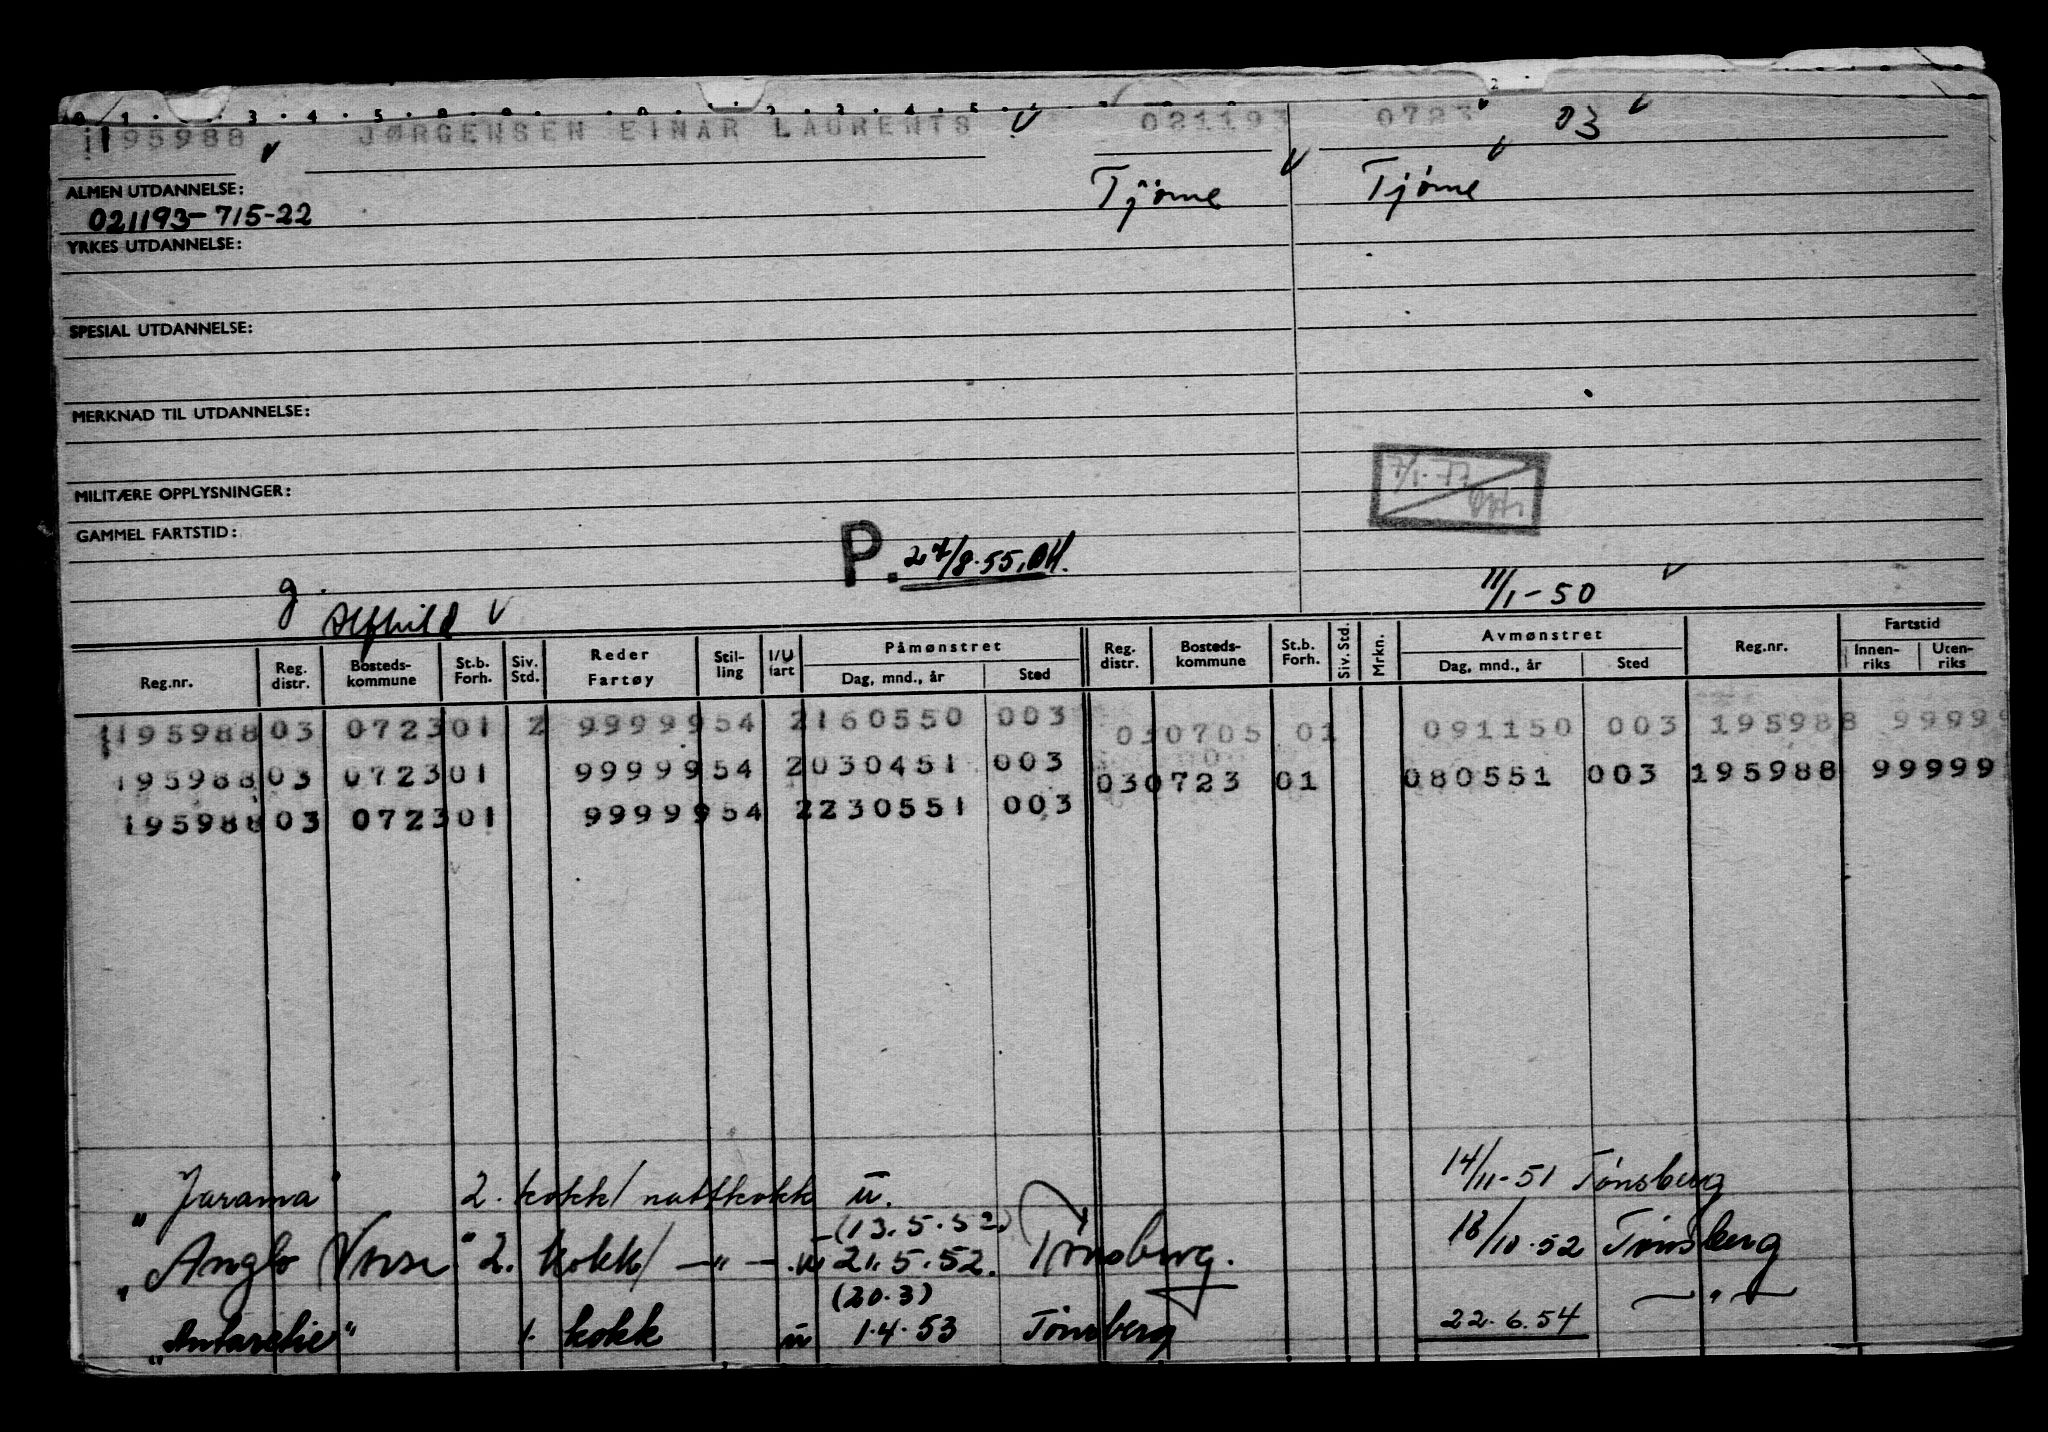 195988 JØRGENSEN EINAR LAURENTS 021193 0723 03
ALMEN UTDANNELSE: Tjöme Tjöme
021193-715-22
YRKES UTDANNELSE:
SPESIAL UTDANNELSE:
MERKNAD TIL UTDANNELSE:
7/1-77
MILITÆRE OPPLYSNINGER:
GAMMEL FARTSTID:
P. 27/8.55. OH.
g. Alfhild 11/1-50
Reg.nr. Reg. distr. Bosteds-kommune St.b. Forh. Siv. Std. Reder Fartøy Stil-ling I/U fart Påmønstret Dag, mnd., år Sted Reg. distr. Bosteds-kommune St.b. Forh. Siv. Std. Mrkn. Avmønstret Dag, mnd., år Sted Reg.nr. Fartstid Innen-riks Uten-riks
195988 03 0723 01 2 99999 54 2 160550 003 03 0705 01 091150 003 195988 99999
195988 03 0723 01 99999 54 2 030451 003 03 0723 01 080551 003 195988 99999
195988 03 0723 01 99999 54 2 230551 003
"Jarama" 2. kokk/nattkokk u. 14/11-51 Tønsberg
(13.5.52.)
"Anglo Norse" 2. kokk/ —"— u 21.5.52. Tønsberg. 18/10.52 Tønsberg
(20.3)
"Antarctic" 1. kokk u 1.4.53 Tønsberg 22.6.54 —"—